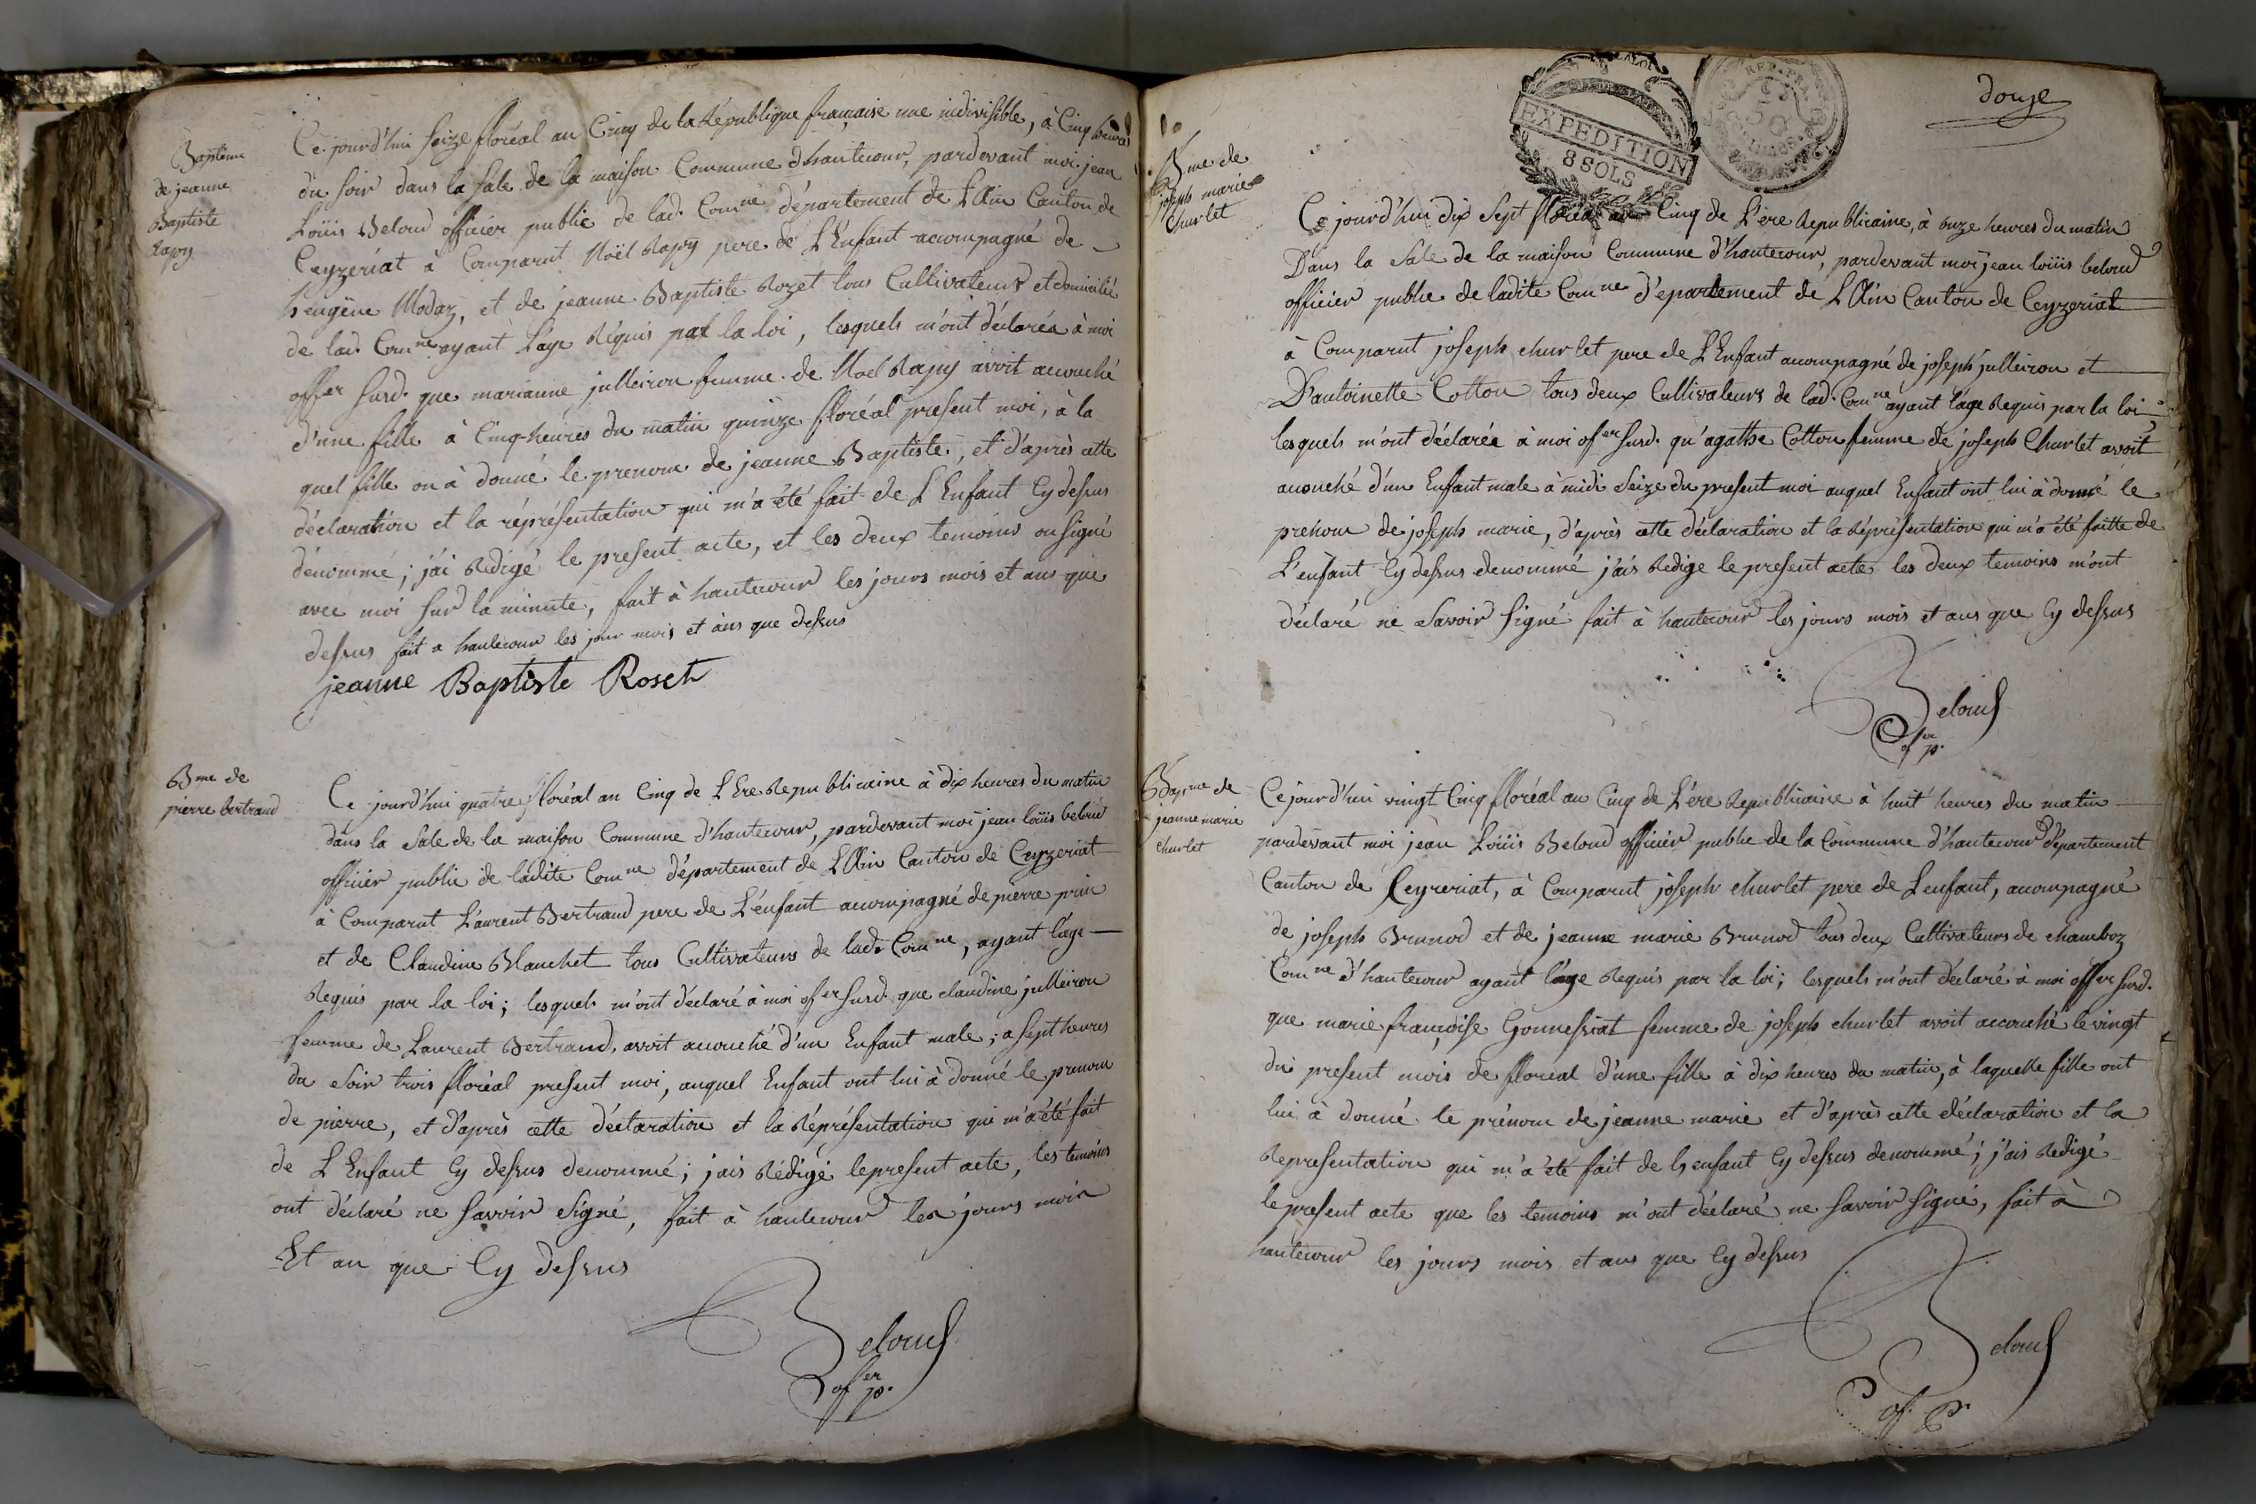 Baptême
de jeanne
Baptiste
Rapy
Ce jourd'hui seize floréal an Cinq de la République française une indivisible, à Cinq heures
du soir dans la sale de la maison Commune d'hautecour, pardevant moi jean
Loüis Beloud officier public de lad. Comne département de L'Ain Canton de
Ceyzeriat à Comparut Noël Rapy pere de L'Enfant accompagné de
heugêne Modaz, et de jeanne Baptiste Rozet tous Cultivateurs et domicilié
de lad. Comne ayant L'age Réquis par la loi, lesquels m'ont déclarés à moi
offer susd. que marianne julleiron femme de Noël Rapy avoit accouché
d'une fille à Cinq heures du matin quinze floréal présent moi, à la
quel fille on à donné le prenom de jeanne Baptiste, et d'après cette
déclaration et la réprésentation qui m'a été fait de L'Enfant Cy dessus
dénommé; j'ai Rédigé le present acte, et les deux temoins on signé
avec moi sur la minute, fait à hautecour les jours mois et ans que
dessus fait a hautecour les jour mois et ans que dessus
jeanne Baptiste Roset
Bme de
pierre bertrand
Ce jourd'hui quatre floréal an Cinq de L'Ere Republicaine à dix heures du matin
dans la sale de la maison Commune d'hautecour, pardevant moi jean loüis beloud
officier public de ladite Comne département de L'Ain Canton de Ceyzeriat
à Comparut Laurent Bertrand pere de L'énfant accompagné de pierre prin
et de Claudine Blanchet tous Cultivateurs de lade Comne, ayant l'age
Réquis par la loi; lesquels m'ont déclaré à moi ofer susd. que claudine julleiron
femme de Laurent Bertrand, avoit accouché d'un Enfant male; a sept heures
du soir trois floréal present moi, auquel Enfant ont lui à donné le prenom
de pierre, et d'après cette déclaration et la Réprésentation qui m'a été fait
de L'Enfant Cy dessus denommé; j'ais Rédigé le present acte, les temoins
ont déclaré ne savoir signé, fait à hautecour les jours mois
Et an que Cy dessus
Beloud
ofer p.
douze
EXPEDITION
8 SOLS
REP. FRA.
50
Bme de
joseph marie
Churlet
Ce jourd'hui dix sept floréal an Cinq de L'ere Republicaine, à onze heures du matin
Dans la Sale de la maison Commune d'hautecour, pardevant moi jean loüis beloud
officier public de ladite Comne d'epartement de L'Ain Canton de Ceyzeriat
à Comparut joseph churlet pere de L'Enfant accompagné de joseph julleiron et
D'antoinette Cotton tous deux Cultivateurs de lad. Comne ayant l'age Requis par la loi
lesquels m'ont déclarée à moi ofer susd. qu'agathe Cotton femme de joseph Churlet avoit
accouché d'un Enfant male à midi Seize du present moi auquel Enfant ont lui à donné le
prenom de joseph marie, d'après cette déclaration et la Réprésentation qui m'a été faitte de
L'enfant Cy dessus denommé j'ais Redige le present acte les deux temoins m'ont
déclaré ne Savoir signé fait à hautecour les jours mois et ans que Cy dessus
Beloud
ofer p.
Bapme de
jeanne marie
churlet
Ce jourd'hui vingt Cinq floréal an Cinq de L'ére Republicaine à huit heures du matin
pardevant moi jean Loüis Beloud officier public de la Commune d'hautecour département
Canton de Ceyzeriat, à Comparut joseph churlet pere de L'enfant, accompagné
de joseph Brunod et de jeanne marie Brunod tous deux Cultivateurs de chamboz
Comne d'hautecour ayant l'age Requis par la loi; lesquels m'ont déclaré à moi offer susd.
que marie françoise Gonnessiat femme de joseph churlet avoit accouché le vingt
du present mois de floréal d'une fille à dix heures du matin, à laquelle fille ont
lui à donné le prénom de jeanne marie et d'après cette déclaration et la
Representation qui m'a été fait de L'enfant Cy dessus denommé; j'ais Redigé
le present acte que les temoins m'ont déclaré ne savoir signé, fait à
hautecour les jours mois et ans que Cy dessus
Beloud
of. P.